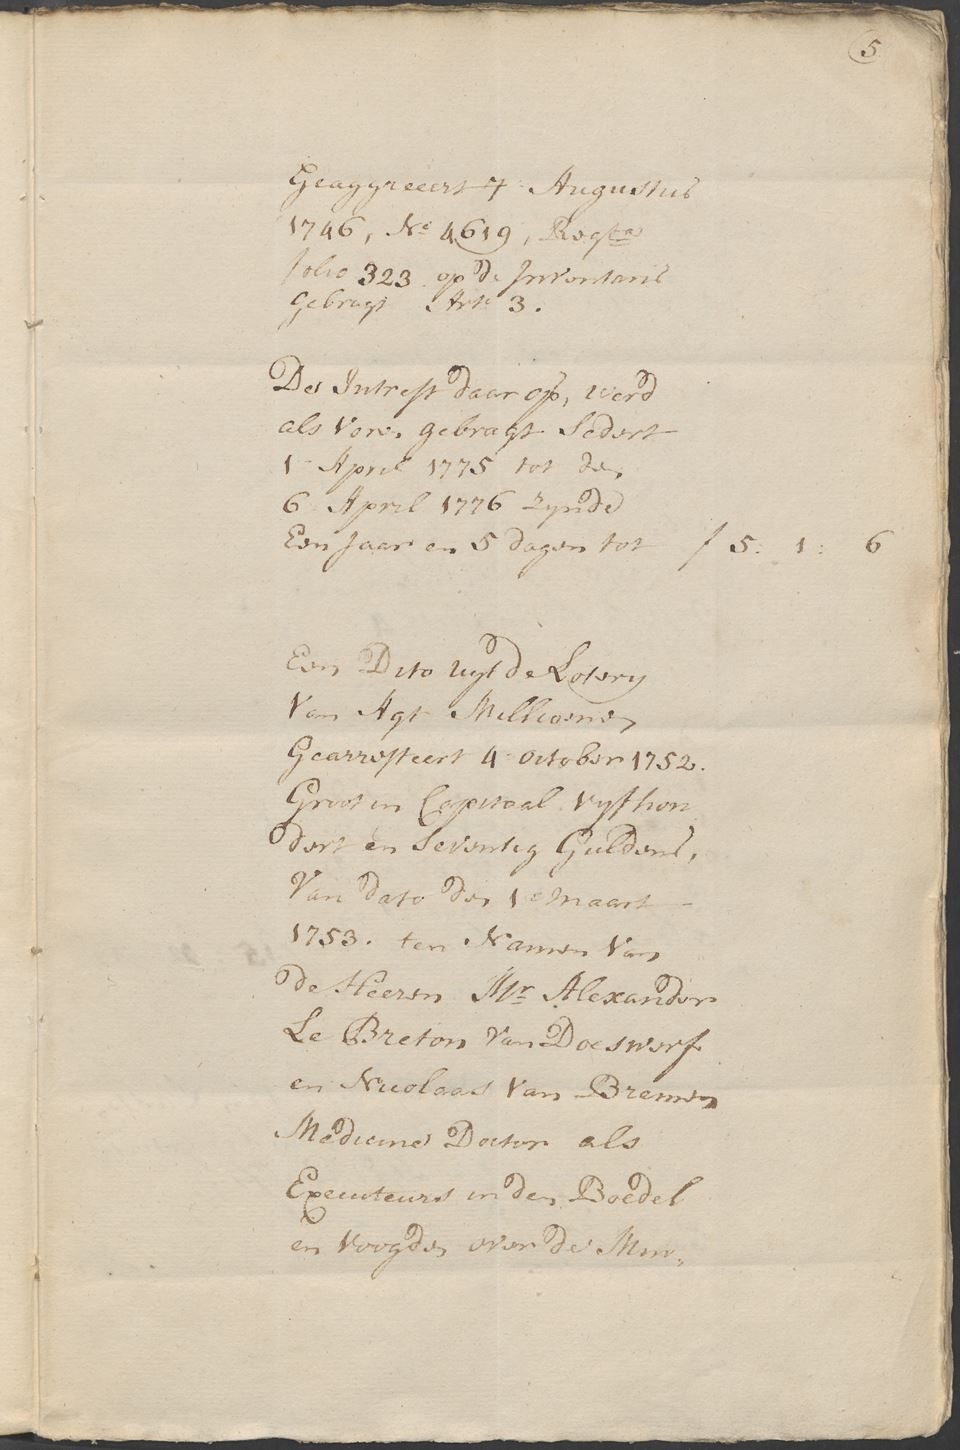 5
Geaggreeert 7 Augustus
1746, No 4619, Regta
folio 323 op de Inventaris
gebragt Arto 3.
Des Intrest daar op, werd
als vore, gebragt sedert
1 April 1775 tot den
6 April 1776 zynde
Een Jaar en 5 dagen tot f 5: 1: 6
Een Dito uyt de Lotery
Van Agt Millioenen
Gearresteert 4 october 1752.
Groot in Capitaal vyfhon
dert en seventig Guldens,
Van dato den 1e maart
1753. ten Namen Van
de Heeren Mr Alexander
Le Breton Van Doeswerf
en Nicolaas Van Bremen
Medicine Doctor als
Executeurs in den Boedel
en voogden over de Min„